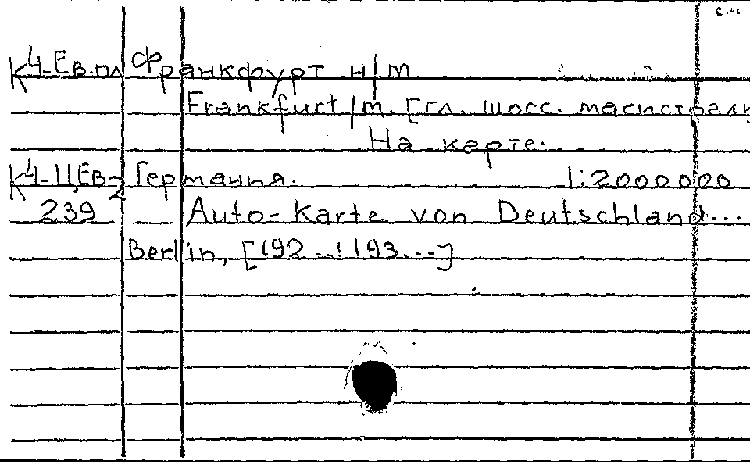 К4-Ев.пл Франкфурт н/м
Frankfurt/m. [гл. шосс. магистрали
На карте:
К4-Ц.Ев-2 Германия. 1:2000000
239 Auto-Karte von Deutschland...
Berlin, [192..!193...]